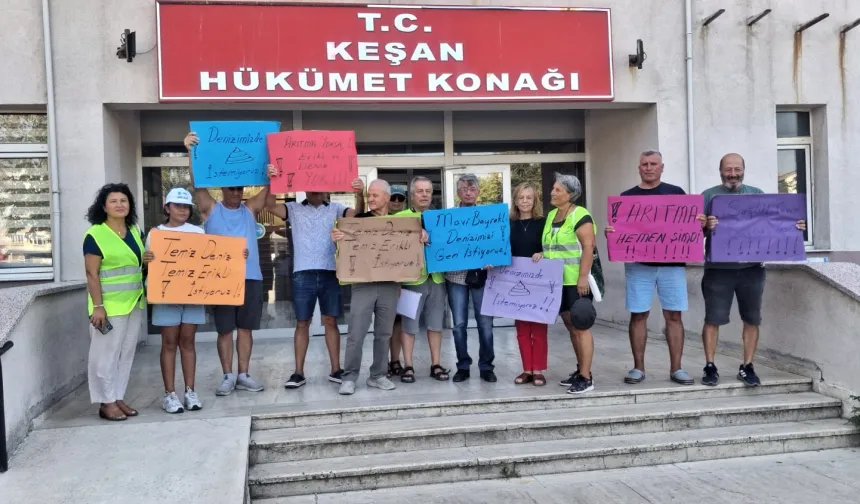 T.C.
KEŞAN
HÜKÜMET KONAĞI
DENİZİMİZDE
İSTEMİYORUZ!
ARITMA YOKSA
ERİKLİ VE
DENİZ
YOK!!!
TEMİZ DENİZ
TEMİZ ERİKLİ
İSTİYORUZ!!
TEMİZ
TEMİZ ERİKLİ
İSTİYORUZ!!
MAVİ BAYRAKLI
DENİZİMİZİ
GERİ İSTİYORUZ!!
DENİZİMİZDE
İSTEMİYORUZ!!
ARITMA
HEMEN ŞİMDİ
!!!!!!!!